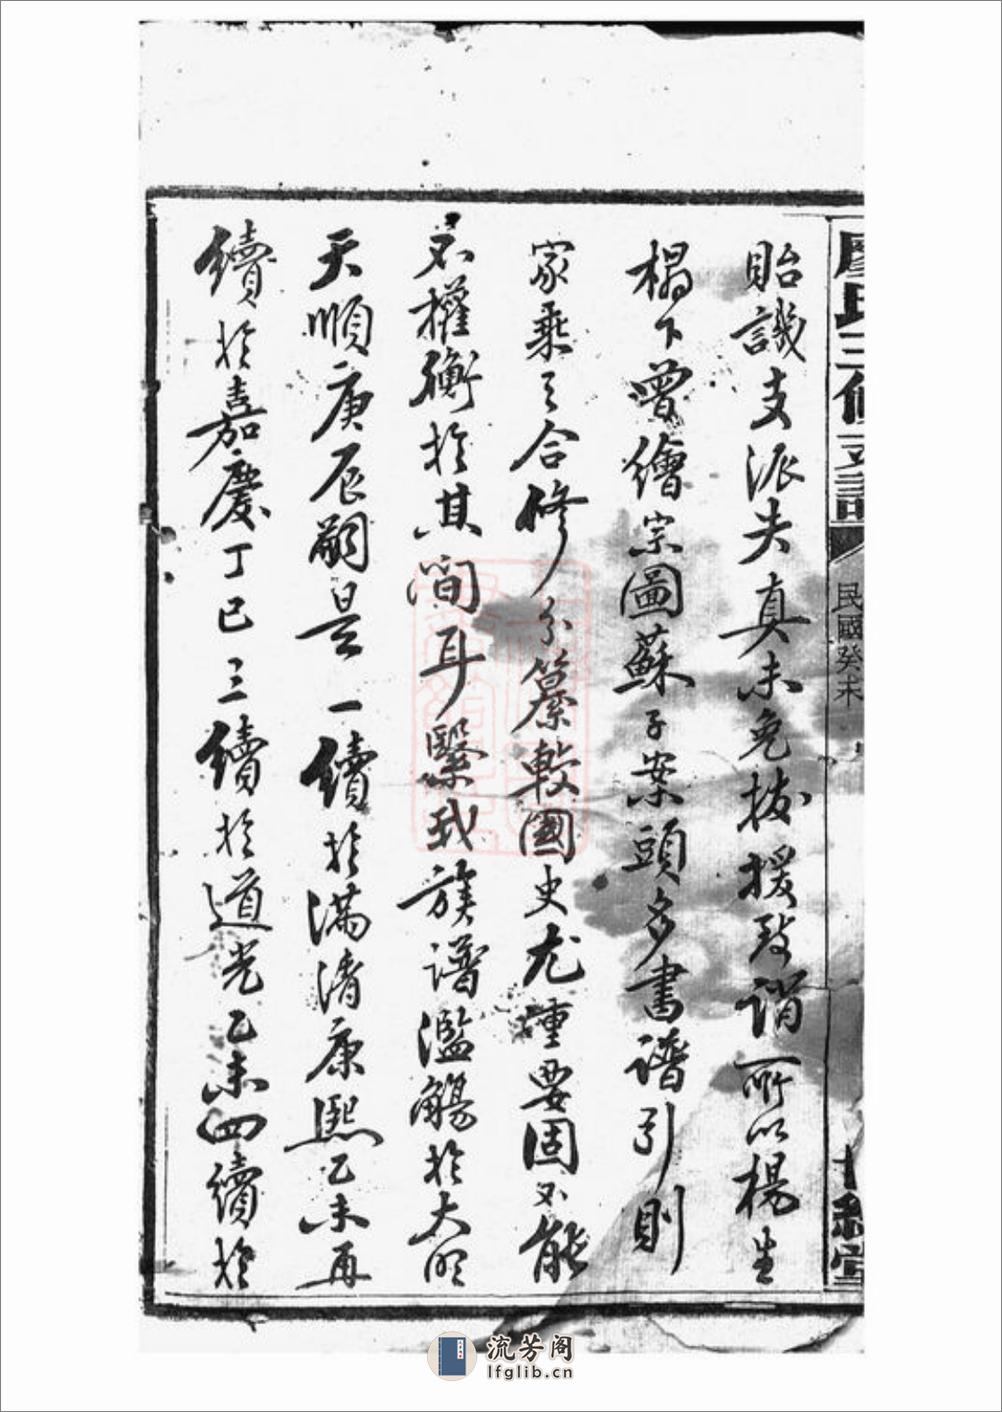 廖氏三修支譜
民國癸未
貽譏支派失真未免援致誚所以楊生
榻下曾繪宗圖蘇子案頭多書譜引則
家乘之合修分纂較國史尤重要固不能
不權衡於其間耳緊我族譜濫觴於大明
天順庚辰嗣是一續於滿清康熙乙未再
續於嘉慶丁巳三續於道光乙未四續於
流芳阁
lfglib.cn